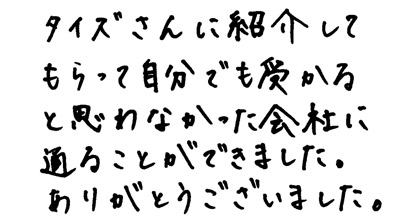 タイズさんに紹介して
もらって自分でも受かる
と思わなかった会社に
通ることができました。
ありがとうございました。